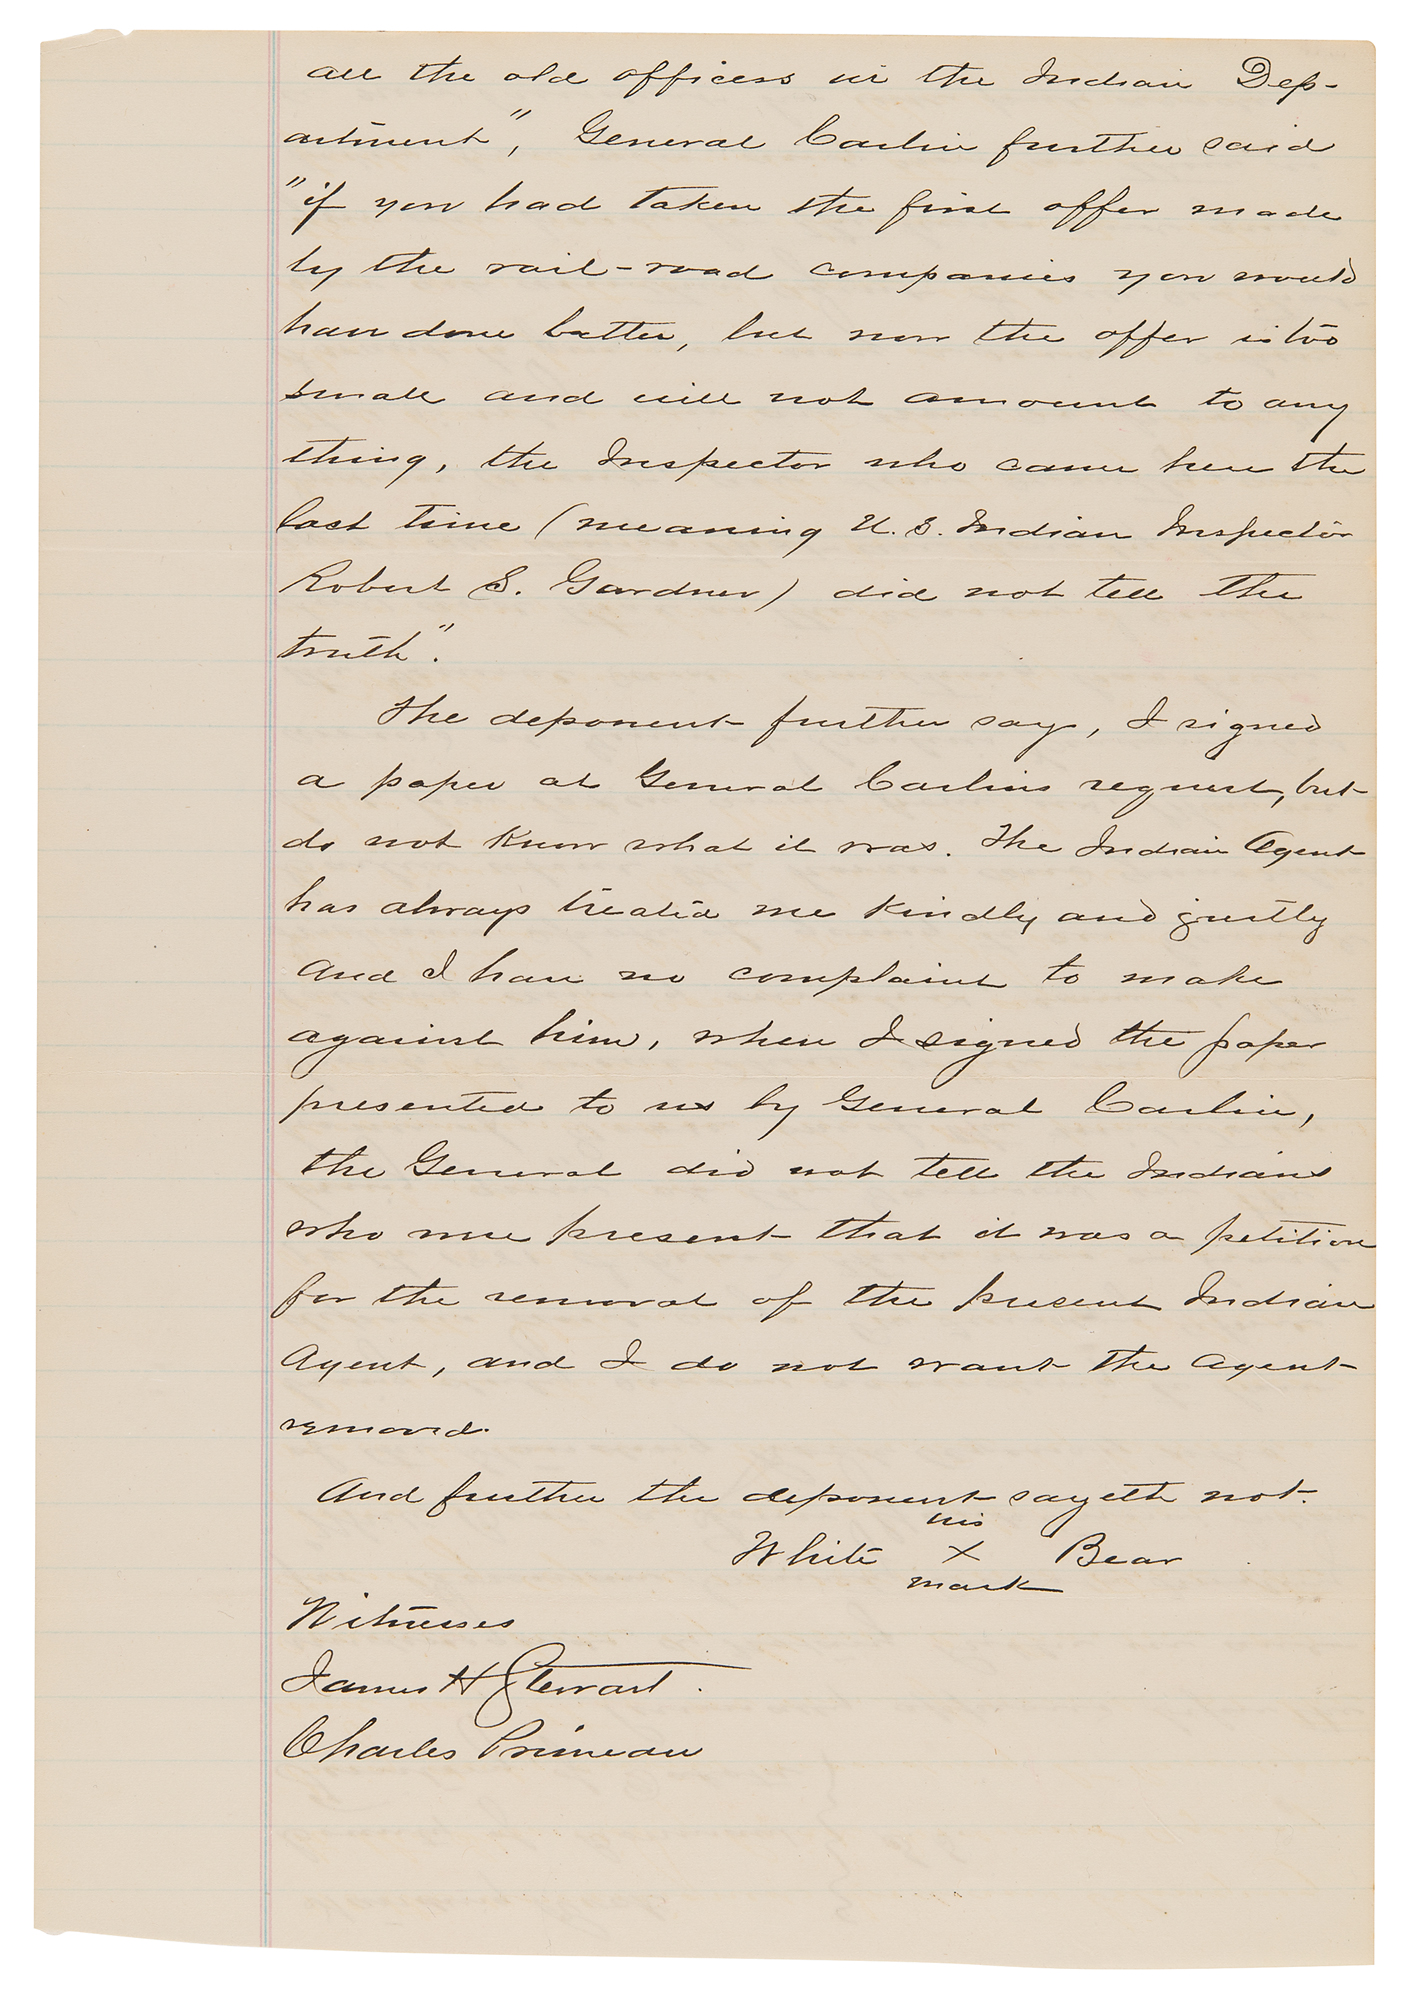 all the old officers in the Indian Dep-
artment", General Carlin further said
"if you had taken the first offer made
by the rail-road companies you would
have done better, but now the offer is too
small and will not amount to any
thing, the Inspector who came here the
last time (meaning U.S. Indian Inspector
Robert S. Gardner) did not tell the
truth".
The deponent further say, I signed
a paper at General Carlins request, but
do not know what it was. The Indian Agent
has always treated me kindly and justly
and I have no complaint to make
against him, when I signed the paper
presented to us by General Carlin,
the General did not tell the Indians
who were present that it was a petition
for the removal of the present Indian
Agent, and I do not want the Agent
removed.
And further the deponent sayeth not.
his
White X Bear
mark
Witnesses
James H Stewart.
Charles Primeau